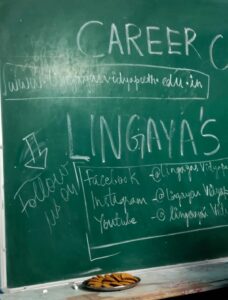 CAREER C
www.lingayasvidyapeeth.edu.in
LINGAYA'S
Follow us on
Facebook - @lingayas Vidya
Instagram - @lingayas Vidya
Youtube - @ lingayas Vi